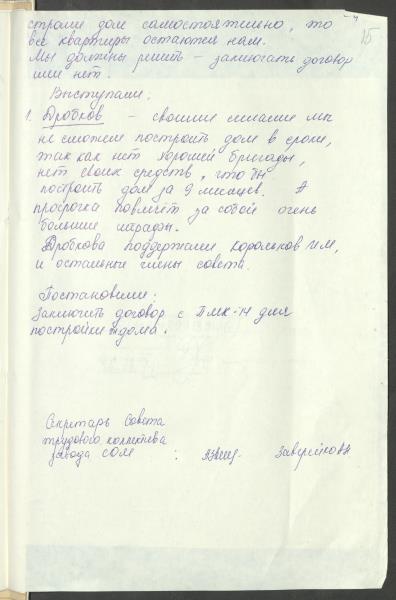 15
строим дом самостоятельно, то
все квартиры остаются нам.
Мы должны решить – заключать договор
или нет.
Выступали.
1. Дробков – своими силами мы
не сможем построить дом в сроки,
так как нет хорошей бригады,
нет своих средств, что бы
построить дом за 9 месяцев. А
просрочка повлечёт за собой очень
большие штрафы.
Дробкова поддержали Корольков И.М,
и остальные члены совета.
Постановили:
Заключить договор с ПМК-14 для
постройки дома.
Секретарь Совета
трудового коллектива
завода СОМ :